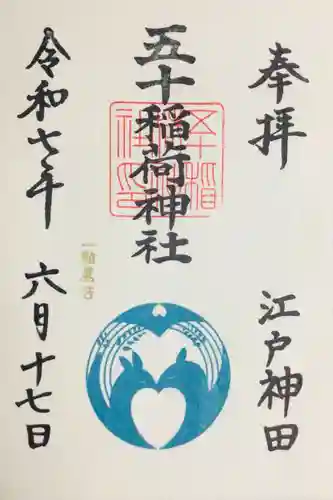 奉拝
江戸神田
五十稲荷神社
令和七年
六月十七日